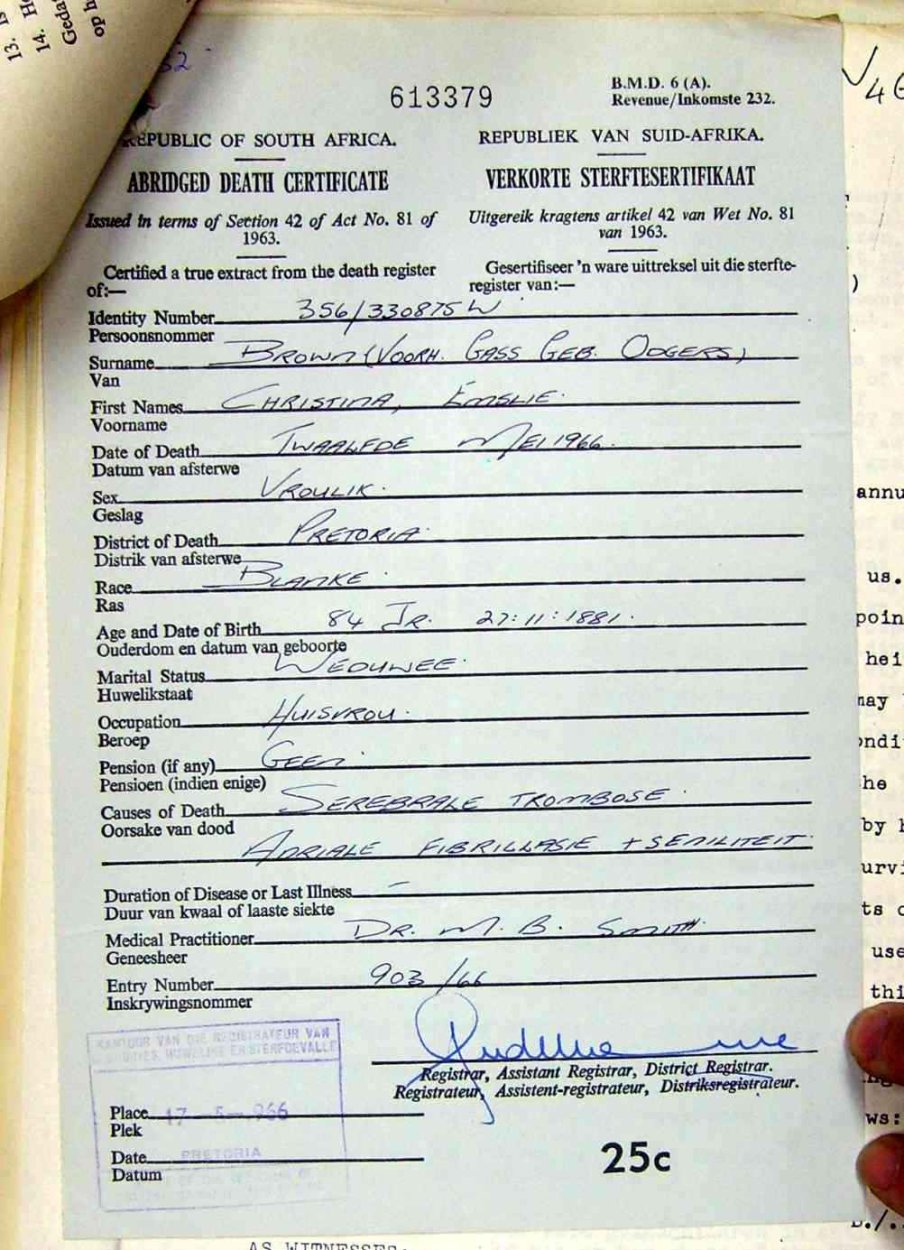 13.
14. H
Geda
op h
32
613379
B.M.D. 6 (A).
Revenue/Inkomste 232.
REPUBLIC OF SOUTH AFRICA.
REPUBLIEK VAN SUID-AFRIKA.
ABRIDGED DEATH CERTIFICATE
VERKORTE STERFTESERTIFIKAAT
Issued in terms of Section 42 of Act No. 81 of
1963.
Uitgereik kragtens artikel 42 van Wet No. 81
van 1963.
Certified a true extract from the death register
of:—
Gesertifiseer 'n ware uittreksel uit die sterfte-
register van:—
Identity Number 356/330875W
Persoonsnommer
Surname BROWN (VOORH. GASS GEB. ODGERS)
Van
First Names CHRISTINA, EMSLIE.
Voorname
Date of Death TWAALFDE MEI 1966.
Datum van afsterwe
Sex VROULIK.
Geslag
District of Death PRETORIA.
Distrik van afsterwe
Race BLANKE.
Ras
Age and Date of Birth 84 JR. 27:11:1881.
Ouderdom en datum van geboorte
Marital Status WEDUWEE.
Huwelikstaat
Occupation HUISVROU.
Beroep
Pension (if any) GEEN.
Pensioen (indien enige)
Causes of Death SEREBRALE TROMBOSE.
Oorsake van dood
ADRIALE FIBRILLASIE + SENILITEIT.
Duration of Disease or Last Illness —
Duur van kwaal of laaste siekte
Medical Practitioner DR. M. B. SMITH.
Geneesheer
Entry Number 903/66
Inskrywingsnommer
KANTOOR VAN DIE REGISTRATEUR VAN
GEBOORTES, HUWELIKE EN STERFGEVALLE
Registrar, Assistant Registrar, District Registrar.
Registrateur, Assistent-registrateur, Distriksregistrateur.
Place 17-5-1966
Plek
Date PRETORIA
Datum
25c
AS WITNESSES:
46
annu
us.
poin
hei
may
ondi
he
by
urvi
ts
use
thi
ws: